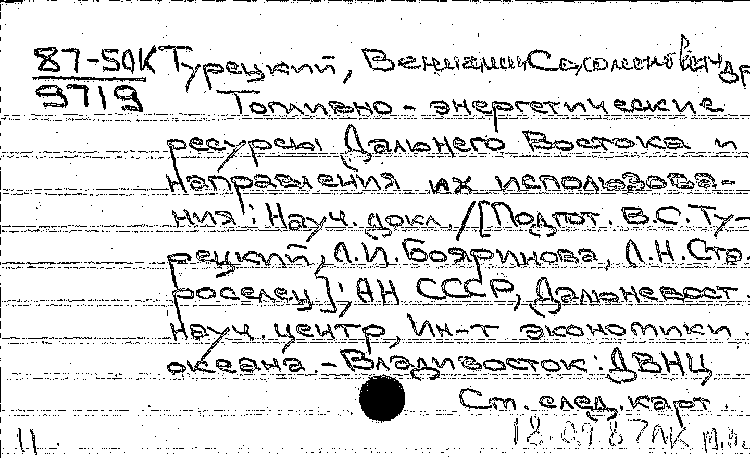 87-50К Турецкий, Вениамин Соломонович и др
9719 Топливно-энергетические
ресурсы Дальнего Востока и
направления их использова-
ния: Науч. докл. /[Подгот. В.С. Ту-
рецкий, Л.И. Бояринова, Л.Н. Ста-
роселец]; АН СССР, Дальневост.
науч. центр, Ин-т экономики
океана. - Владивосток: ДВНЦ
См. след. карт.
18.09 87 ЛК
11